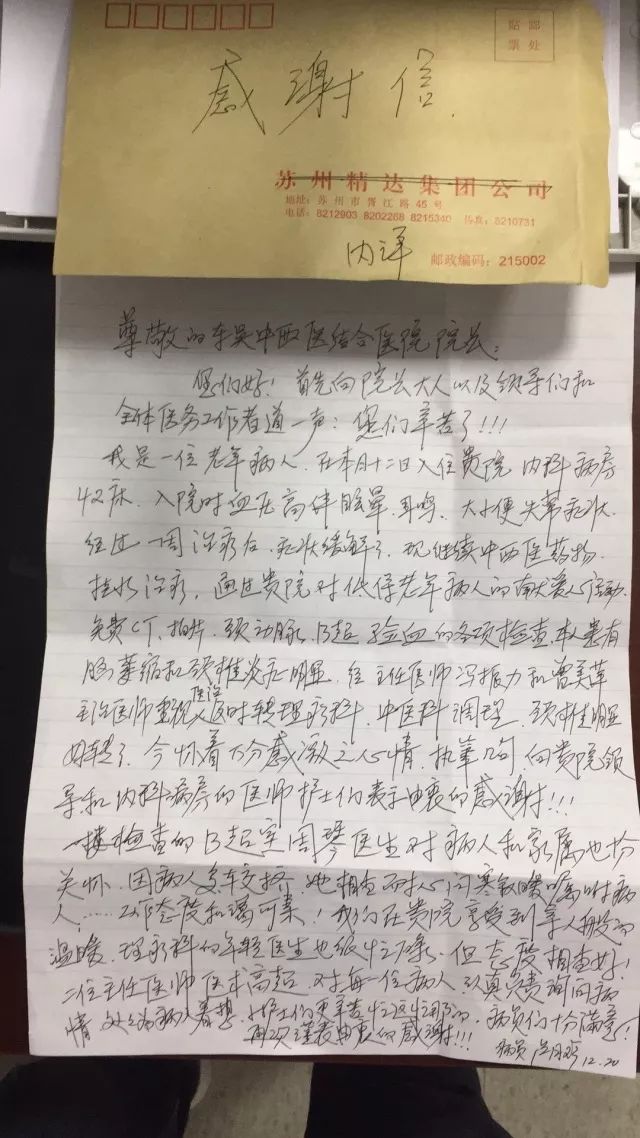 贴邮
票处
感谢信.
苏州精达集团公司
地址:苏州市胥江路45号
电话:8212903 8202268 8215340 传真:8210731
内详
邮政编码:215002
尊敬的东吴中西医结合医院院长:
您们好!首先向院长大人以及领导们和
全体医务工作者道一声:您们辛苦了!!!
我是一位老年病人,在本月十二日入住贵院内科病房
42床,入院时血压高伴眩晕、耳鸣、大小便失常症状
经过一周治疗后,症状缓解了,现继续中西医药物,
挂水治疗,通过贵院对低保老年病人的献爱心活动,
免费CT、拍片、颈动脉、B超、验血的各项检查,本人患有
脑萎缩和颈椎炎症明显,经主任医师冯振力和曾美萍
主治医师重视医治及时转理疗科,中医科调理,颈椎明显
好转了,今怀着万分感激之心情,执笔几句,向贵院领
导和内科病房的医师护士们表示由衷的感谢!!!
一楼检查的B超室周琴医生对病人和家属也十分
关怀,因病人多,车交挤,她相当耐心问寒叙暖嘱咐病
人,……工作态度和蔼可亲!我们在贵院享受到亲人般的
温暖,理疗科的年轻医生也很忙碌,但态度相当好!
二位主任医师医术高超,对每一位病人认真负责询问病
情,处处为病人着想,护士们更辛苦忙这忙那的,病员们十分满意!
再次谨表由衷的感谢!!!
病员 12.20